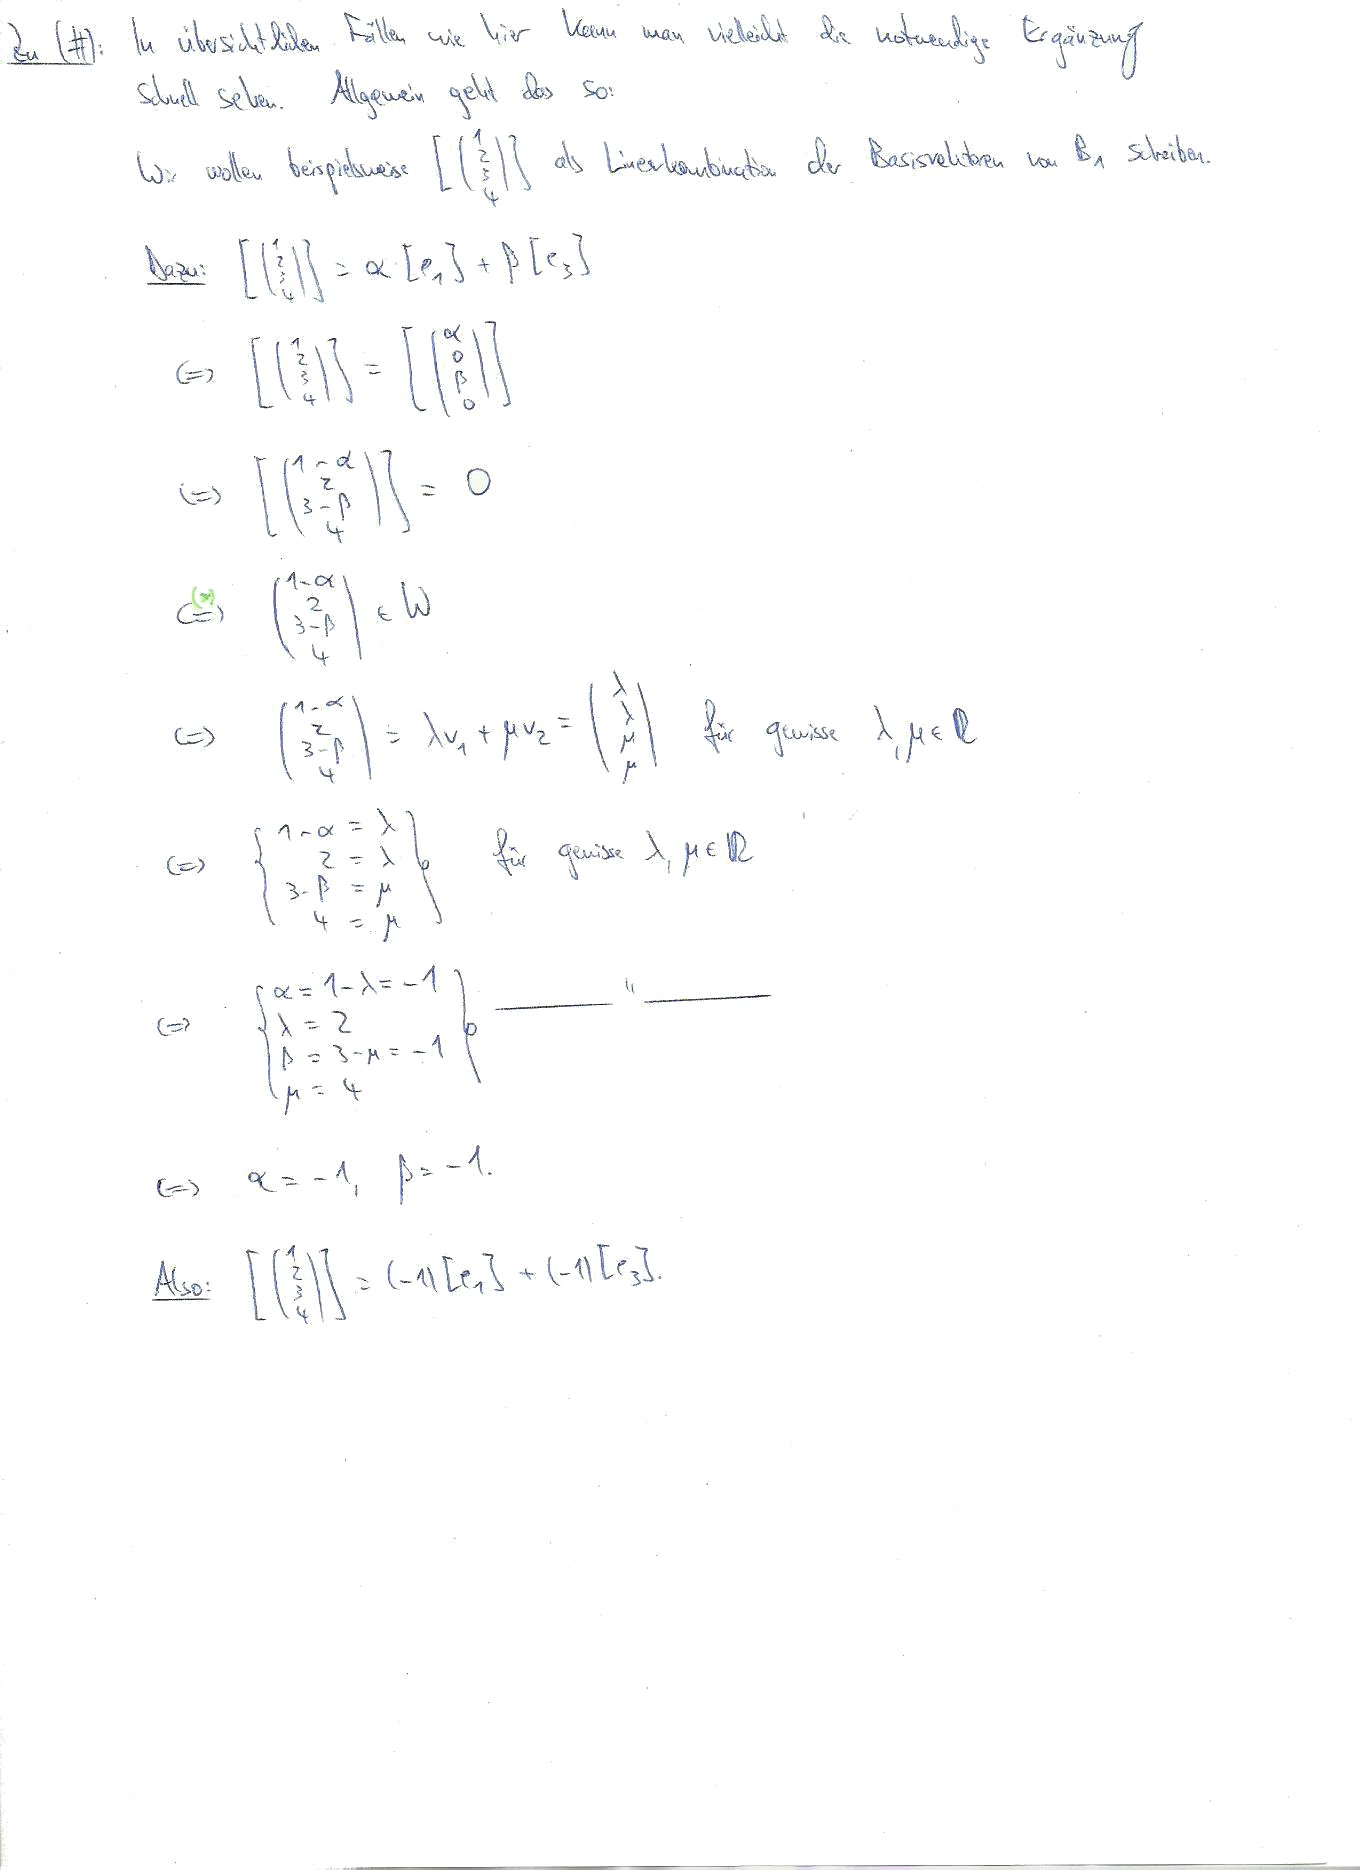 Zu (#): In übersichtlichen Fällen wie hier kann man vielleicht die notwendige Ergänzung
schnell sehen. Allgemein geht das so:
Wir wollen beispielsweise [(1 2 3 4)] als Linearkombination der Basisvektoren von B₁ schreiben.
Dazu: [(1 2 3 4)] = α·[e₁] + β[e₃]
⇔ [(1 2 3 4)] = [(α 0 β 0)]
⇔ [(1-α 2 3-β 4)] = 0
(*)
⇔ (1-α 2 3-β 4) ∈ W
⇔ (1-α 2 3-β 4) = λv₁ + μv₂ = (λ λ μ μ) für gewisse λ, μ ∈ ℝ
⇔ { 1-α = λ
2 = λ
3-β = μ
4 = μ } für gewisse λ, μ ∈ ℝ
⇔ { α = 1-λ = -1
λ = 2
β = 3-μ = -1
μ = 4 } —— " ——
⇔ α = -1, β = -1.
Also: [(1 2 3 4)] = (-1)[e₁] + (-1)[e₃].